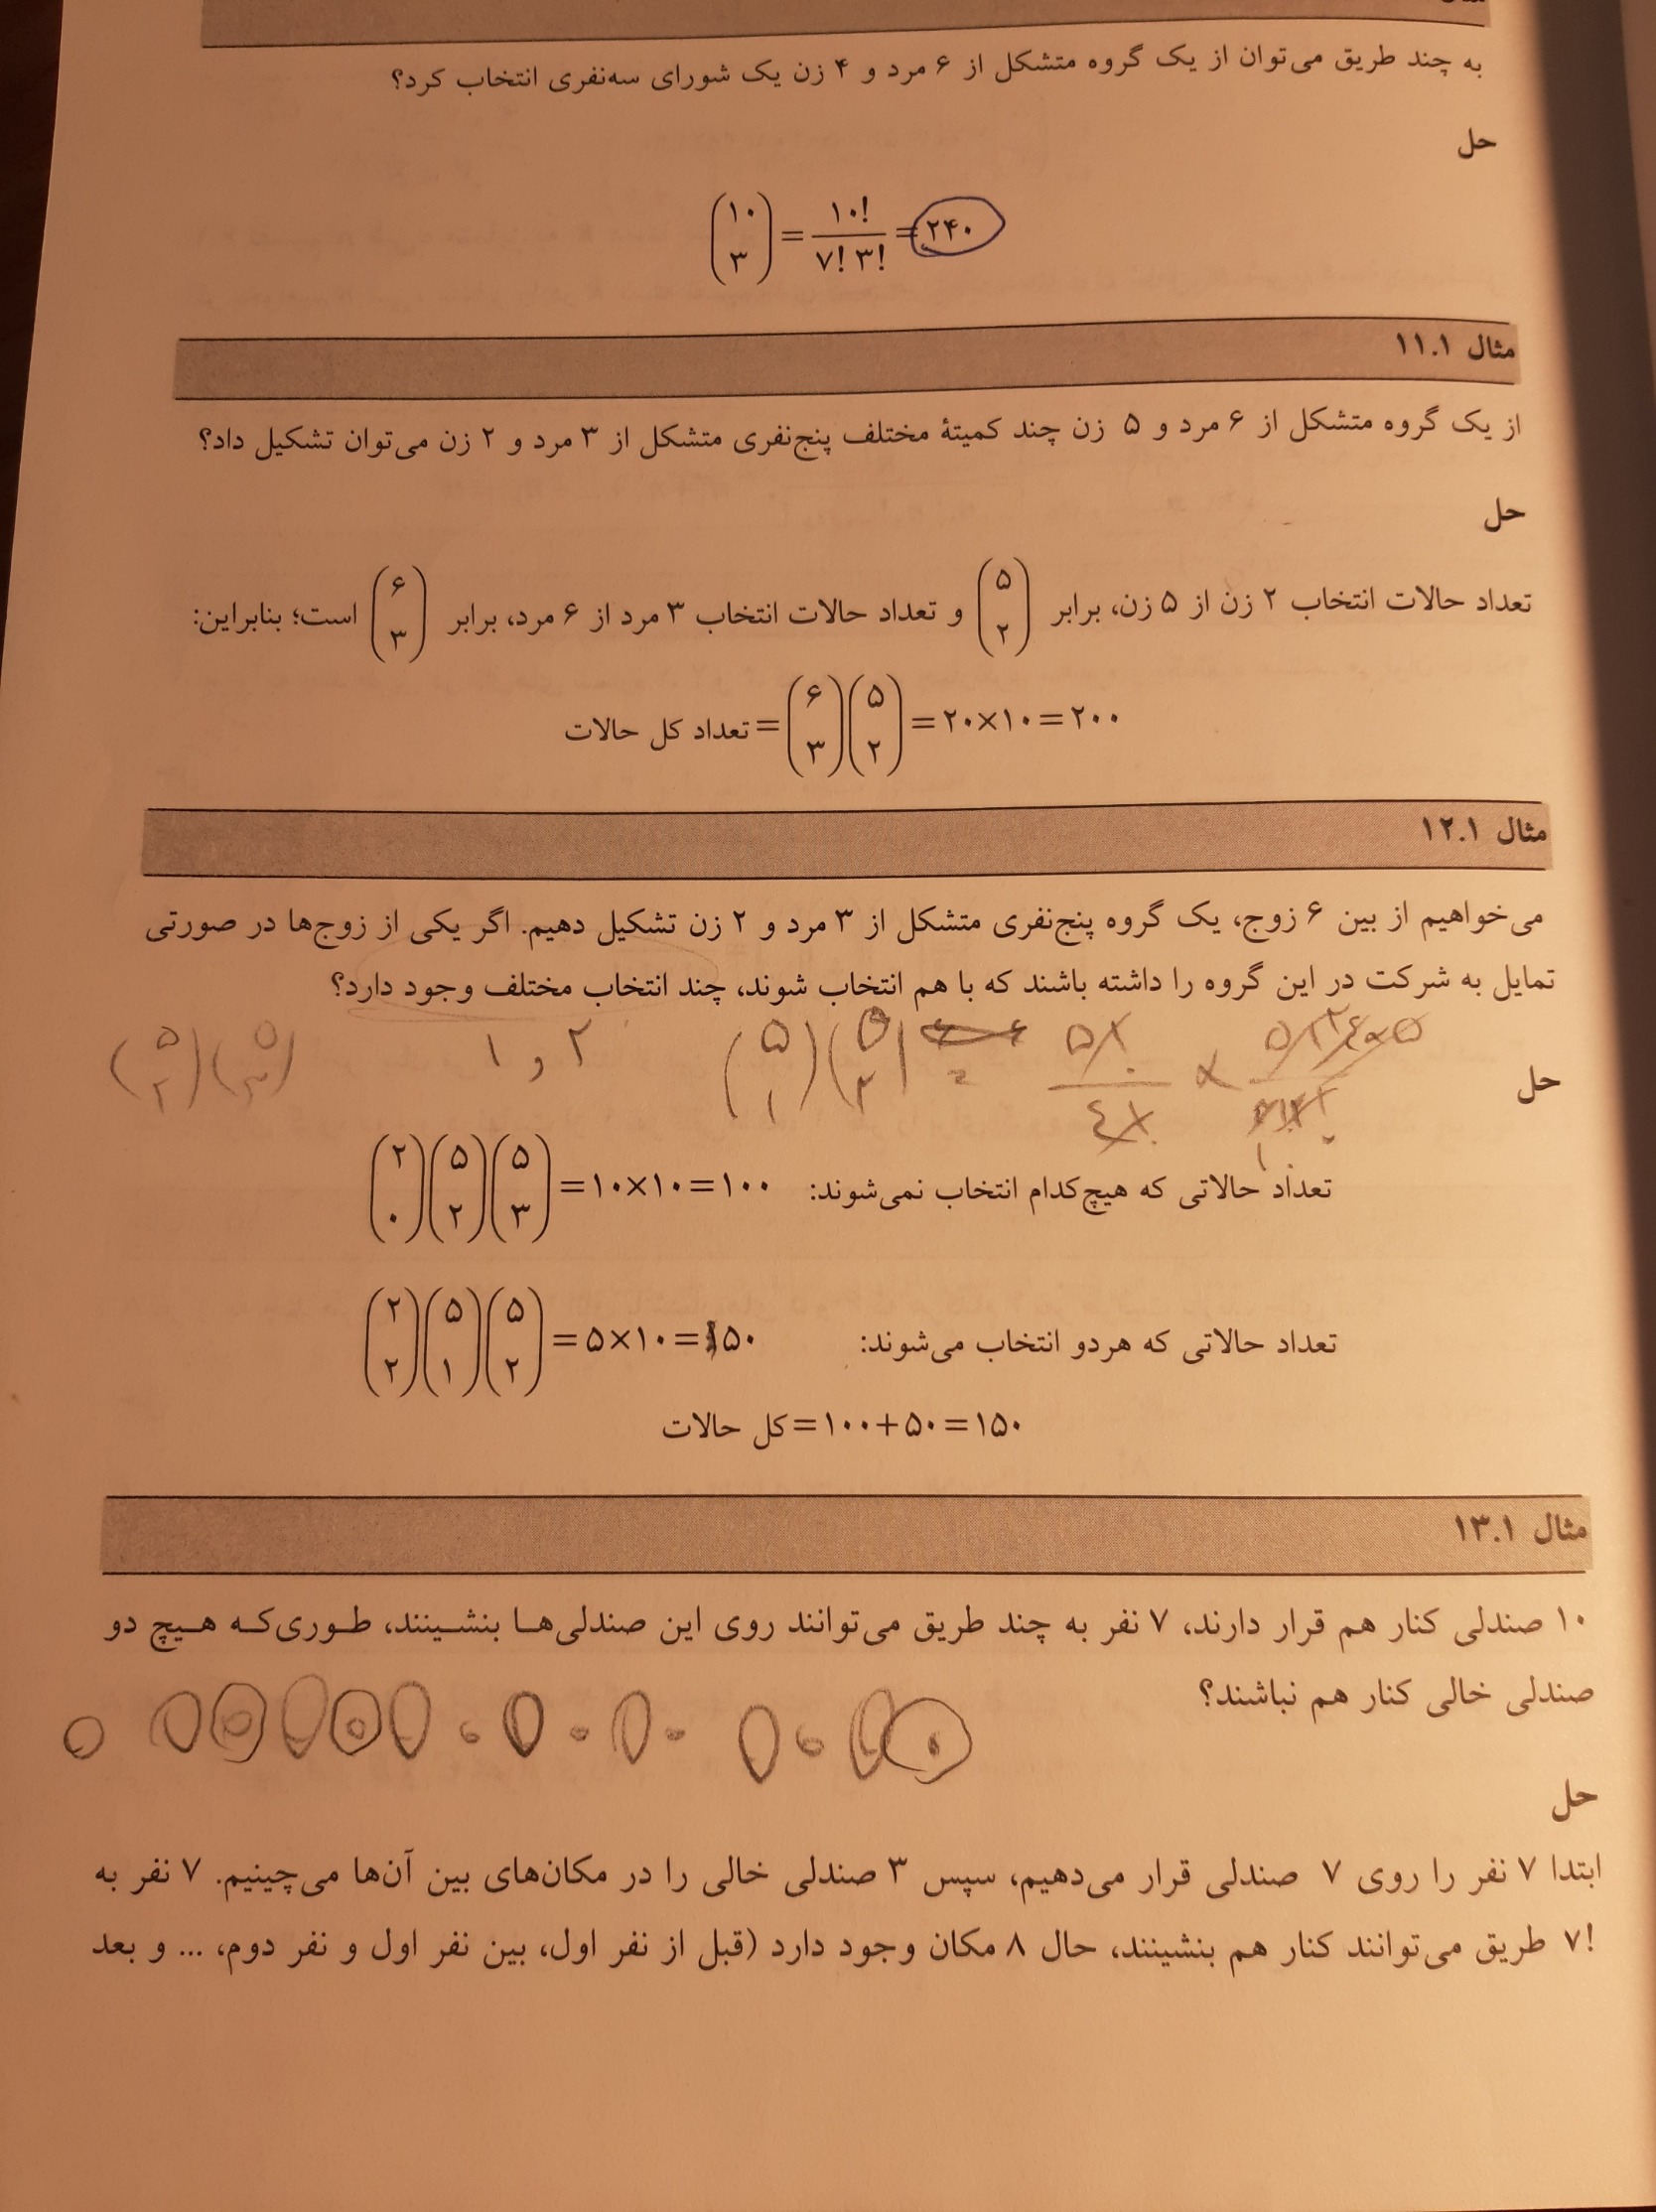 به چند طریق می‌توان از یک گروه متشکل از ۶ مرد و ۴ زن یک شورای سه‌نفری انتخاب کرد؟
حل
(۱۰ ۳) = ۱۰! / ۷! ۳! = ۲۴۰
مثال ۱۱.۱
از یک گروه متشکل از ۶ مرد و ۵ زن چند کمیتهٔ مختلف پنج‌نفری متشکل از ۳ مرد و ۲ زن می‌توان تشکیل داد؟
حل
تعداد حالات انتخاب ۲ زن از ۵ زن، برابر (۵ ۲) و تعداد حالات انتخاب ۳ مرد از ۶ مرد، برابر (۶ ۳) است؛ بنابراین:
تعداد کل حالات = (۶ ۳)(۵ ۲) = ۲۰×۱۰ = ۲۰۰
مثال ۱۲.۱
می‌خواهیم از بین ۶ زوج، یک گروه پنج‌نفری متشکل از ۳ مرد و ۲ زن تشکیل دهیم. اگر یکی از زوج‌ها در صورتی
تمایل به شرکت در این گروه را داشته باشند که با هم انتخاب شوند، چند انتخاب مختلف وجود دارد؟
(۵ ۲)(۵ ۳) ۱ , ۲ (۵ ۱)(۵ ۲) =
حل
تعداد حالاتی که هیچ‌کدام انتخاب نمی‌شوند: (۲ ۰)(۵ ۲)(۵ ۳) = ۱۰×۱۰ = ۱۰۰
تعداد حالاتی که هردو انتخاب می‌شوند: (۲ ۲)(۵ ۱)(۵ ۲) = ۵×۱۰ = ۵۰
کل حالات = ۱۰۰+۵۰ = ۱۵۰
مثال ۱۳.۱
۱۰ صندلی کنار هم قرار دارند، ۷ نفر به چند طریق می‌توانند روی این صندلی‌ها بنشینند، طوری‌که هیچ دو
صندلی خالی کنار هم نباشند؟
حل
ابتدا ۷ نفر را روی ۷ صندلی قرار می‌دهیم، سپس ۳ صندلی خالی را در مکان‌های بین آن‌ها می‌چینیم. ۷ نفر به
۷! طریق می‌توانند کنار هم بنشینند، حال ۸ مکان وجود دارد (قبل از نفر اول، بین نفر اول و نفر دوم، ... و بعد